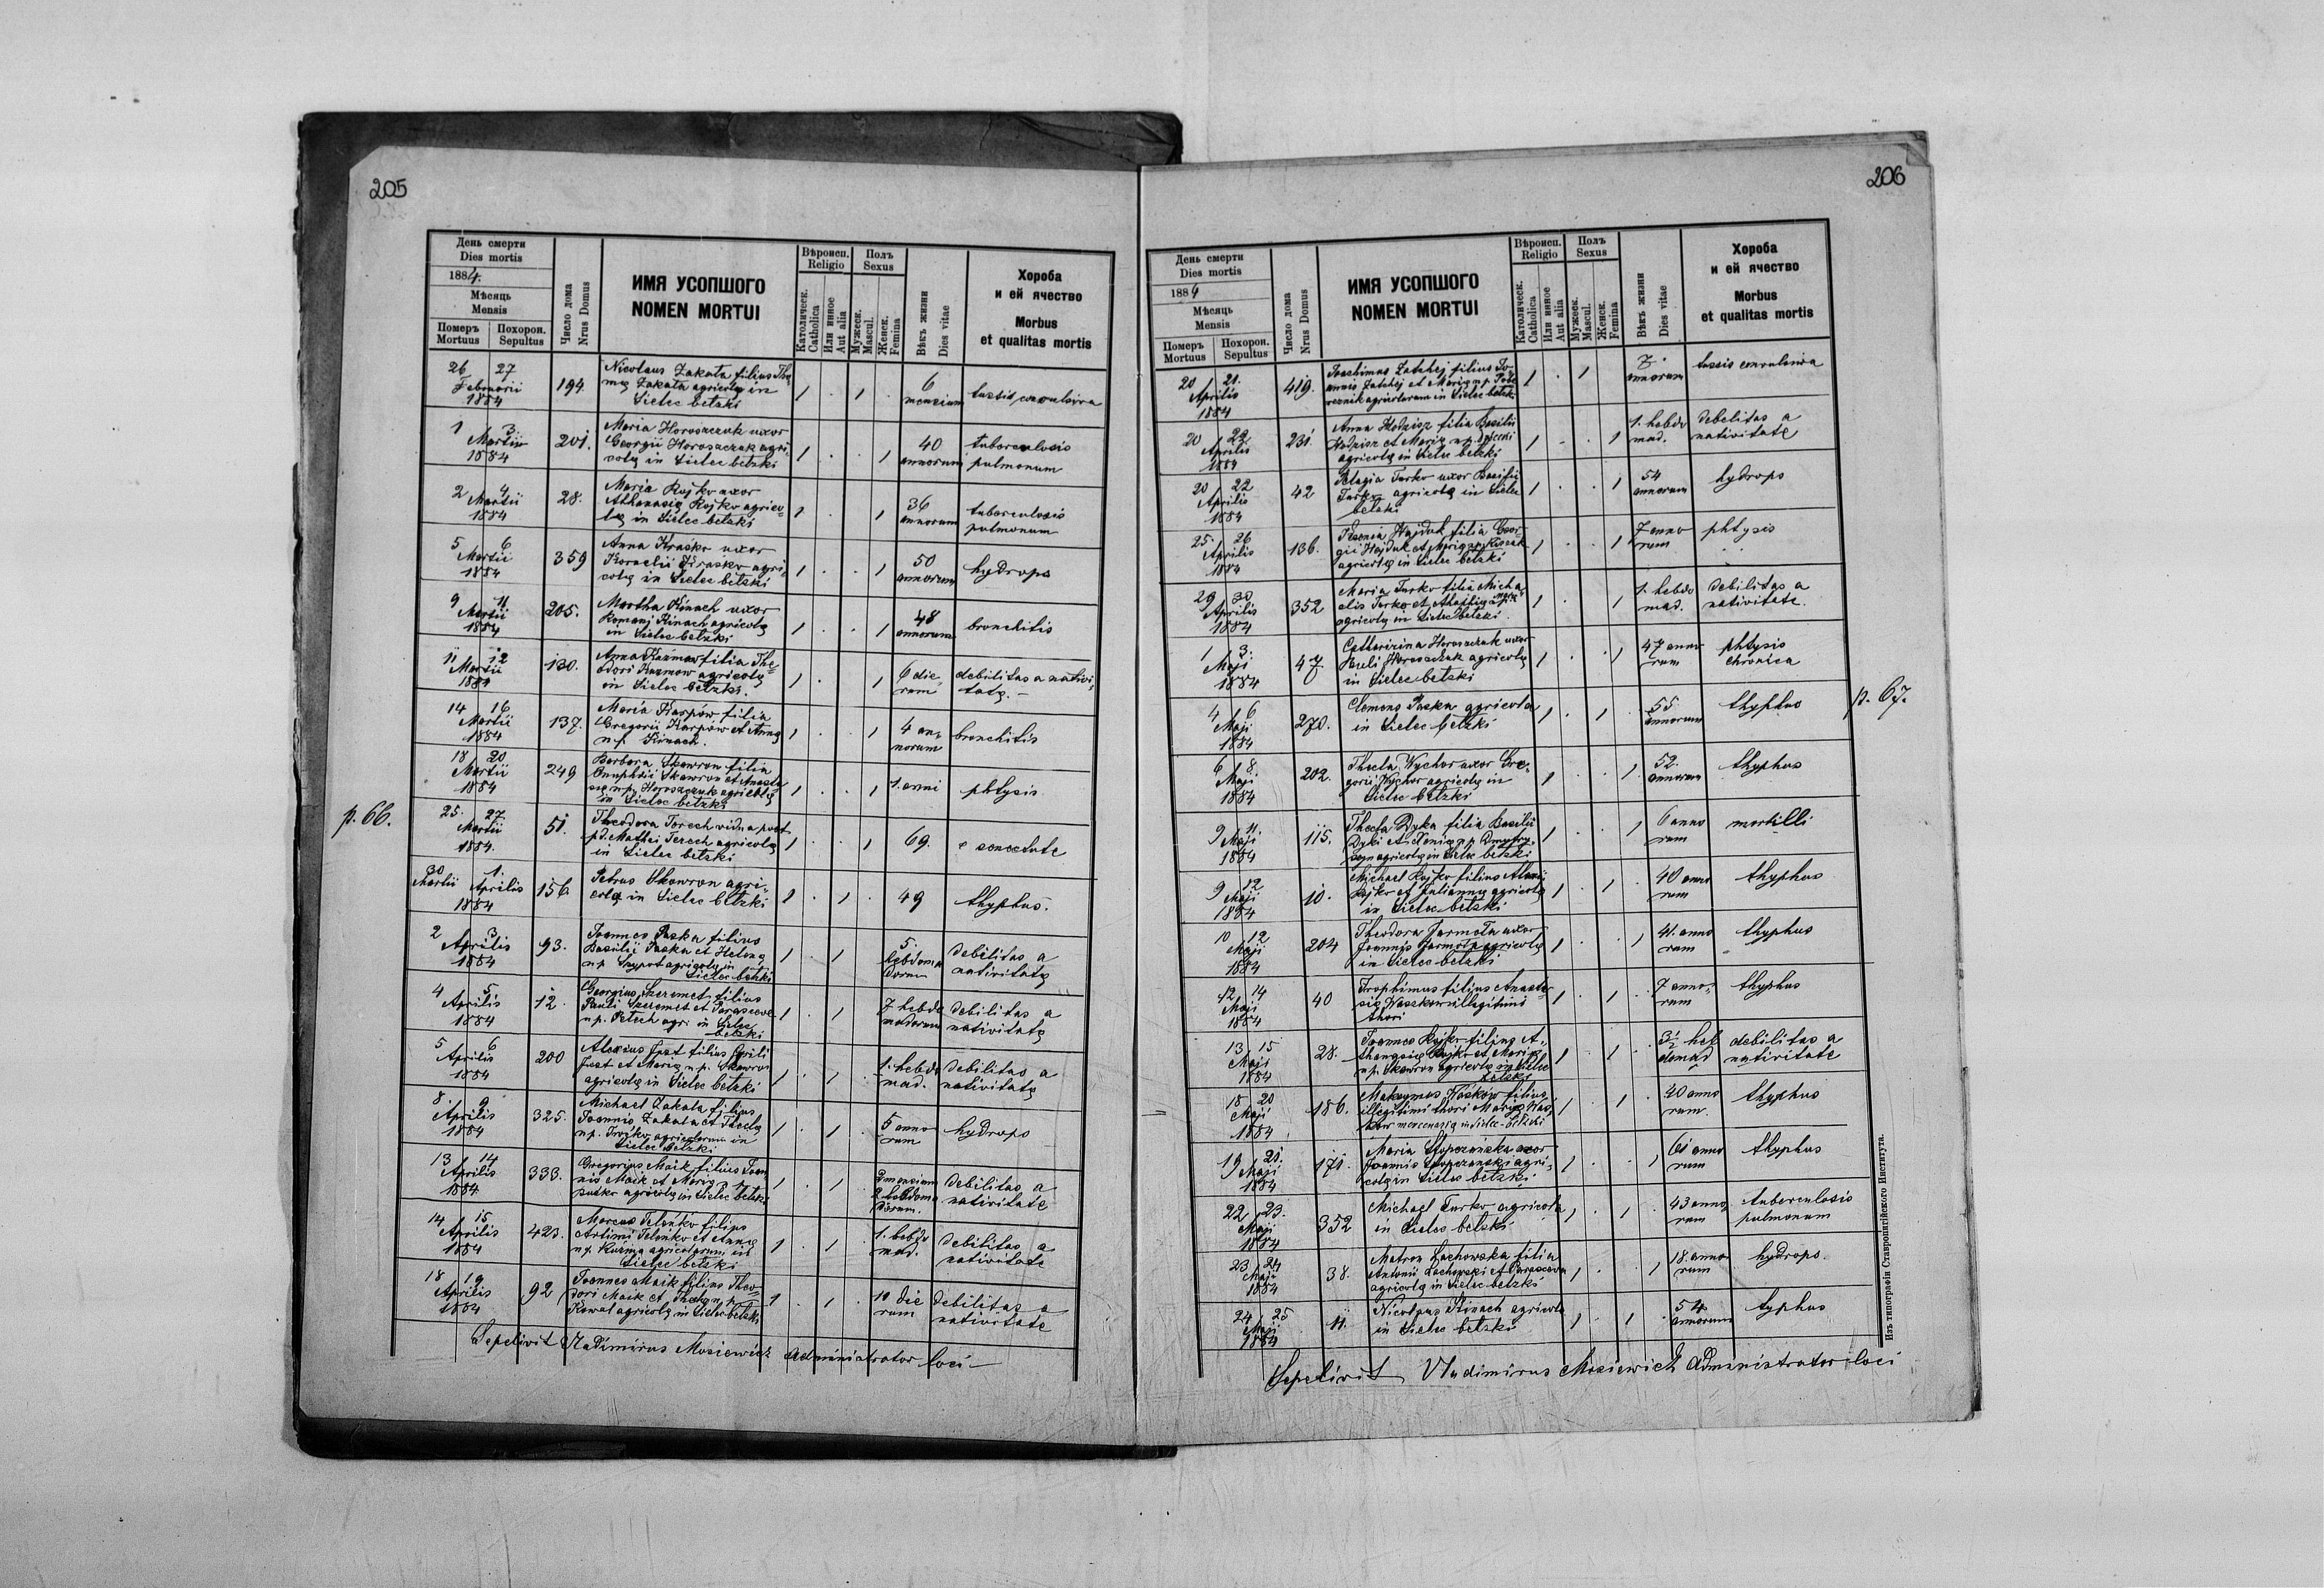 205
День смерти
Dies mortis
1884.
Мѣсяць
Mensis
Померъ
Mortuus
Похорон.
Sepultus
Число дома
Nrus Domus
ИМЯ УСОПШОГО
NOMEN MORTUI
Вѣроисп.
Religio
Католическ.
Catholica
Или инное
Aut alia
Полъ
Sexus
Мужеск.
Mascul.
Женск.
Femina
Вѣкъ жизни
Dies vitae
Хороба
и ей ячество
Morbus
et qualitas mortis
26 27
Februarii
1884
194.
Nicolaus Zakala filius Tho-
mę Zakala agricolę in
Sielec bełzki
1 . 1 .
6
mensium
tussis convulsiva
1 3.
Martii
1884
201.
Maria Horoszczuk uxor
Georgii Horoszczuk agri-
colę in Sielec bełzki
1 . . 1
40
annorum
tuberculosis
pulmonum
2 4
Martii
1884
28.
Maria Rojko uxor
Athanasię Rojko agrico-
lę in Sielec bełzki
1 . . 1
36
annorum
tuberculosis
pulmonum
5 6
Martii
1884
359
Anna Kraśko uxor
Kornelii Kraśko agri-
colę in Sielec bełzki
1 . . 1
50
annorum
hydrops
9 11
Martii
1884
205.
Martha Kinach uxor
Romani Kinach agricolę
in Sielec bełzki
1 . . 1
48
annorum
bronchitis
11 12
Martii
1884
130.
Anna Kuzmow filia The-
odori Kuzmow agricolę
in Sielec bełzki.
1 . 1
6 die-
rum
debilitas a nativi-
tatę. –
14 16
Martii
1884
137.
Maria Karpów filia
Gregorii Karpów et Annę
n.p. Kinach.
1 . . 1
4 an-
norum
bronchitis
18 20
Martii
1884
249
Barbara Skowron filia
Onuphrii Skowron et Anasta-
się n.p. Horoszczuk agricolę
in Sielec bełzki
1 . . 1
1. anni
phtysis
p. 66.
25. 27.
Martii
1884.
51.
Theodora Terech vidua post
pd. Mathei Terech agricolę
in Sielec bełzki
1 . . 1
69.
senectute
30 1.
Martii Aprilis
1884
156
Petrus Skowron agri-
colę in Sielec bełzki
1 . 1 .
49
thyphus.
2 3
Aprilis
1884
93.
Joannes Paska filius
Basilii Paska et Helenę
n.p. agricolę in
Sielec bełzki
1 . 1
5.
hebdoma
darum
debilitas a
nativitatę
4 5
Aprilis
1884
12.
Georgius Szeremet filius
Pauli Szeremet et Parascevę
n.p. Petech agri. in Sielec
bełzki
1 . 1
7 hebdo
madarum
debilitas a
nativitatę
5 6
Aprilis
1884
200
Alexius Just filius
Just et Marię n.p. Skowron
agricolę in Sielec bełzki
1 . 1
1. hebdo
mad.
debilitas a
nativitatę
8. 9
Aprilis
1884
325.
Michael Zakala filius
Joannis Zakala et Theclę
n.p. agricolarum in
Sielec Bełzki
1 . 1 .
5 anno
rum
hydrops
13 14
Aprilis
1884
333.
Gregorius Maik filius Joan-
nis Maik et Marię n.p.
agricolę in Sielec bełzki
1 . 1 .
3 mensium
2 hebdoma
darum.
debilitas a
nativitate
14 15
Aprilis
1884
423.
Marcus Teleńko filius
Artimi Teleńko et Annę
n.p. Kuzma agricolarum in
Sielec bełzki
1 . 1 .
1. hebdo
mad.
debilitas a
nativitate
18 19
Aprilis
1884
92
Joannes Maik filius Theo-
dori Maik et Theclę n.p.
Kowal agricolę in Sielec bełzki
1 . 1 .
10 die
rum
debilitas a
nativitate
Sepelivit Vladimirus Mosiewicz Administrator loci –
206
День смерти
Dies mortis
1884
Мѣсяць
Mensis
Померъ
Mortuus
Похорон.
Sepultus
Число дома
Nrus Domus
ИМЯ УСОПШОГО
NOMEN MORTUI
Вѣроисп.
Religio
Католическ.
Catholica
Или инное
Aut alia
Полъ
Sexus
Мужеск.
Mascul.
Женск.
Femina
Вѣкъ жизни
Dies vitae
Хороба
и ей ячество
Morbus
et qualitas mortis
20 21.
Aprilis
1884
419.
filius Jo-
annis et Marię n.p.
agricolarum in Sielec bełzki
1 . 1
7.
annorum
tussis convulsiva
20 22
Aprilis
1884
231.
Anna filia Basilii
et Marię n.p.
agricolę in Sielec bełzki
1 . . 1
1. hebdo
mad.
debelitas a
nativitate
20 22
Aprilis
1884
42
Pelagia Turko uxor Basilii
Turko agricolę in Sielec
bełzki
1 . . 1
54
annorum
hydrops
25. 26
Aprilis
1884
136.
Ksenia Hajduk filia Geor-
gii Hajduk et Marię n.p.
agricolę in Sielec bełzki
1 . . 1
7 anno
rum
phtysis
29 30
Aprilis
1884
352
Maria Turko filia Micha
elis Turko et
agricolę in Sielec bełzki.
1 . 1
1. hebdo
mad.
debilitas a
nativitate.
1 3.
Maji
1884
47.
Catharina Horoszczuk uxor
Pauli Horoszczuk agricolę
in Sielec bełzki
1 . . 1
47 anno
rum
phtysis
chronica
4 6
Maji
1884
270.
Clemens Paska agricola
in Sielec bełzki
1 . 1 .
55
annorum
thyphus
p. 67.
6 8
Maji
1884
202.
Thecla Wychor uxor Gre-
gorii Wychor agricolę in
Sielec bełzki
1 . . 1.
52.
annorum
thyphus
9 11.
Maji
1884
115.
Thecla Dyka filia Basilii
Dyki et n.p.
agricolę in Sielec bełzki
1 . . 1
6 anno
rum
morbilli
9 12
Maji
1884
10.
Michael Rojko filius Alexii
Rojko et Juliannę agricolę
in Sielec bełzki
1 . 1 .
40 anno
rum
thyphus
10 12
Maji
1884
204
Theodora Jarmola uxor
Joannis Jarmola agricolę
in Sielec bełzki
1 . . 1
41. anno
rum
thyphus
12 14
Maji
1884
40
Trophimus filius Anasta-
się illegitimi
thori
1 . 1 .
7 anno-
rum
thyphus
13 15
Maji
1884
28.
Joannes Rojko filius A-
thanasię Rojko et Marię
n.p. Skowron agricolę in Sielec
bełzki
1 . 1 .
3½ heb
domad
debilitas a
nativitate
18 20
Maji
1884
186.
filius
illegitimi thori Marię Was-
kow in Sielec-bełzki
1 . 1 .
40 anno
rum.
thyphus
19 21.
Maji
1884
171.
Maria uxor
Joannis agri-
colę in Sielec bełzki
1 . . 1
61 anno
rum
thyphus
22 23.
Maji
1884
352
Michael Turko agricola
in Sielec bełzki
1 . 1 .
43 anno
rum
tuberculosis
pulmonum
23 24
Maji
1884
38.
Matron Lachowska filia
Antonii Lachowski et Parascevę
agricolę in Sielec bełzki
1 . . 1
18. anno
rum
hydrops.
24 25
Maji
1884
11.
Nicolaus Kinach agricola
in Sielec bełzki
1 . 1 .
54
annorum
typhus
Sepelivit Vladimirus Mosiewicz Administrator loci
Изъ типографіи Ставропигійского Института.